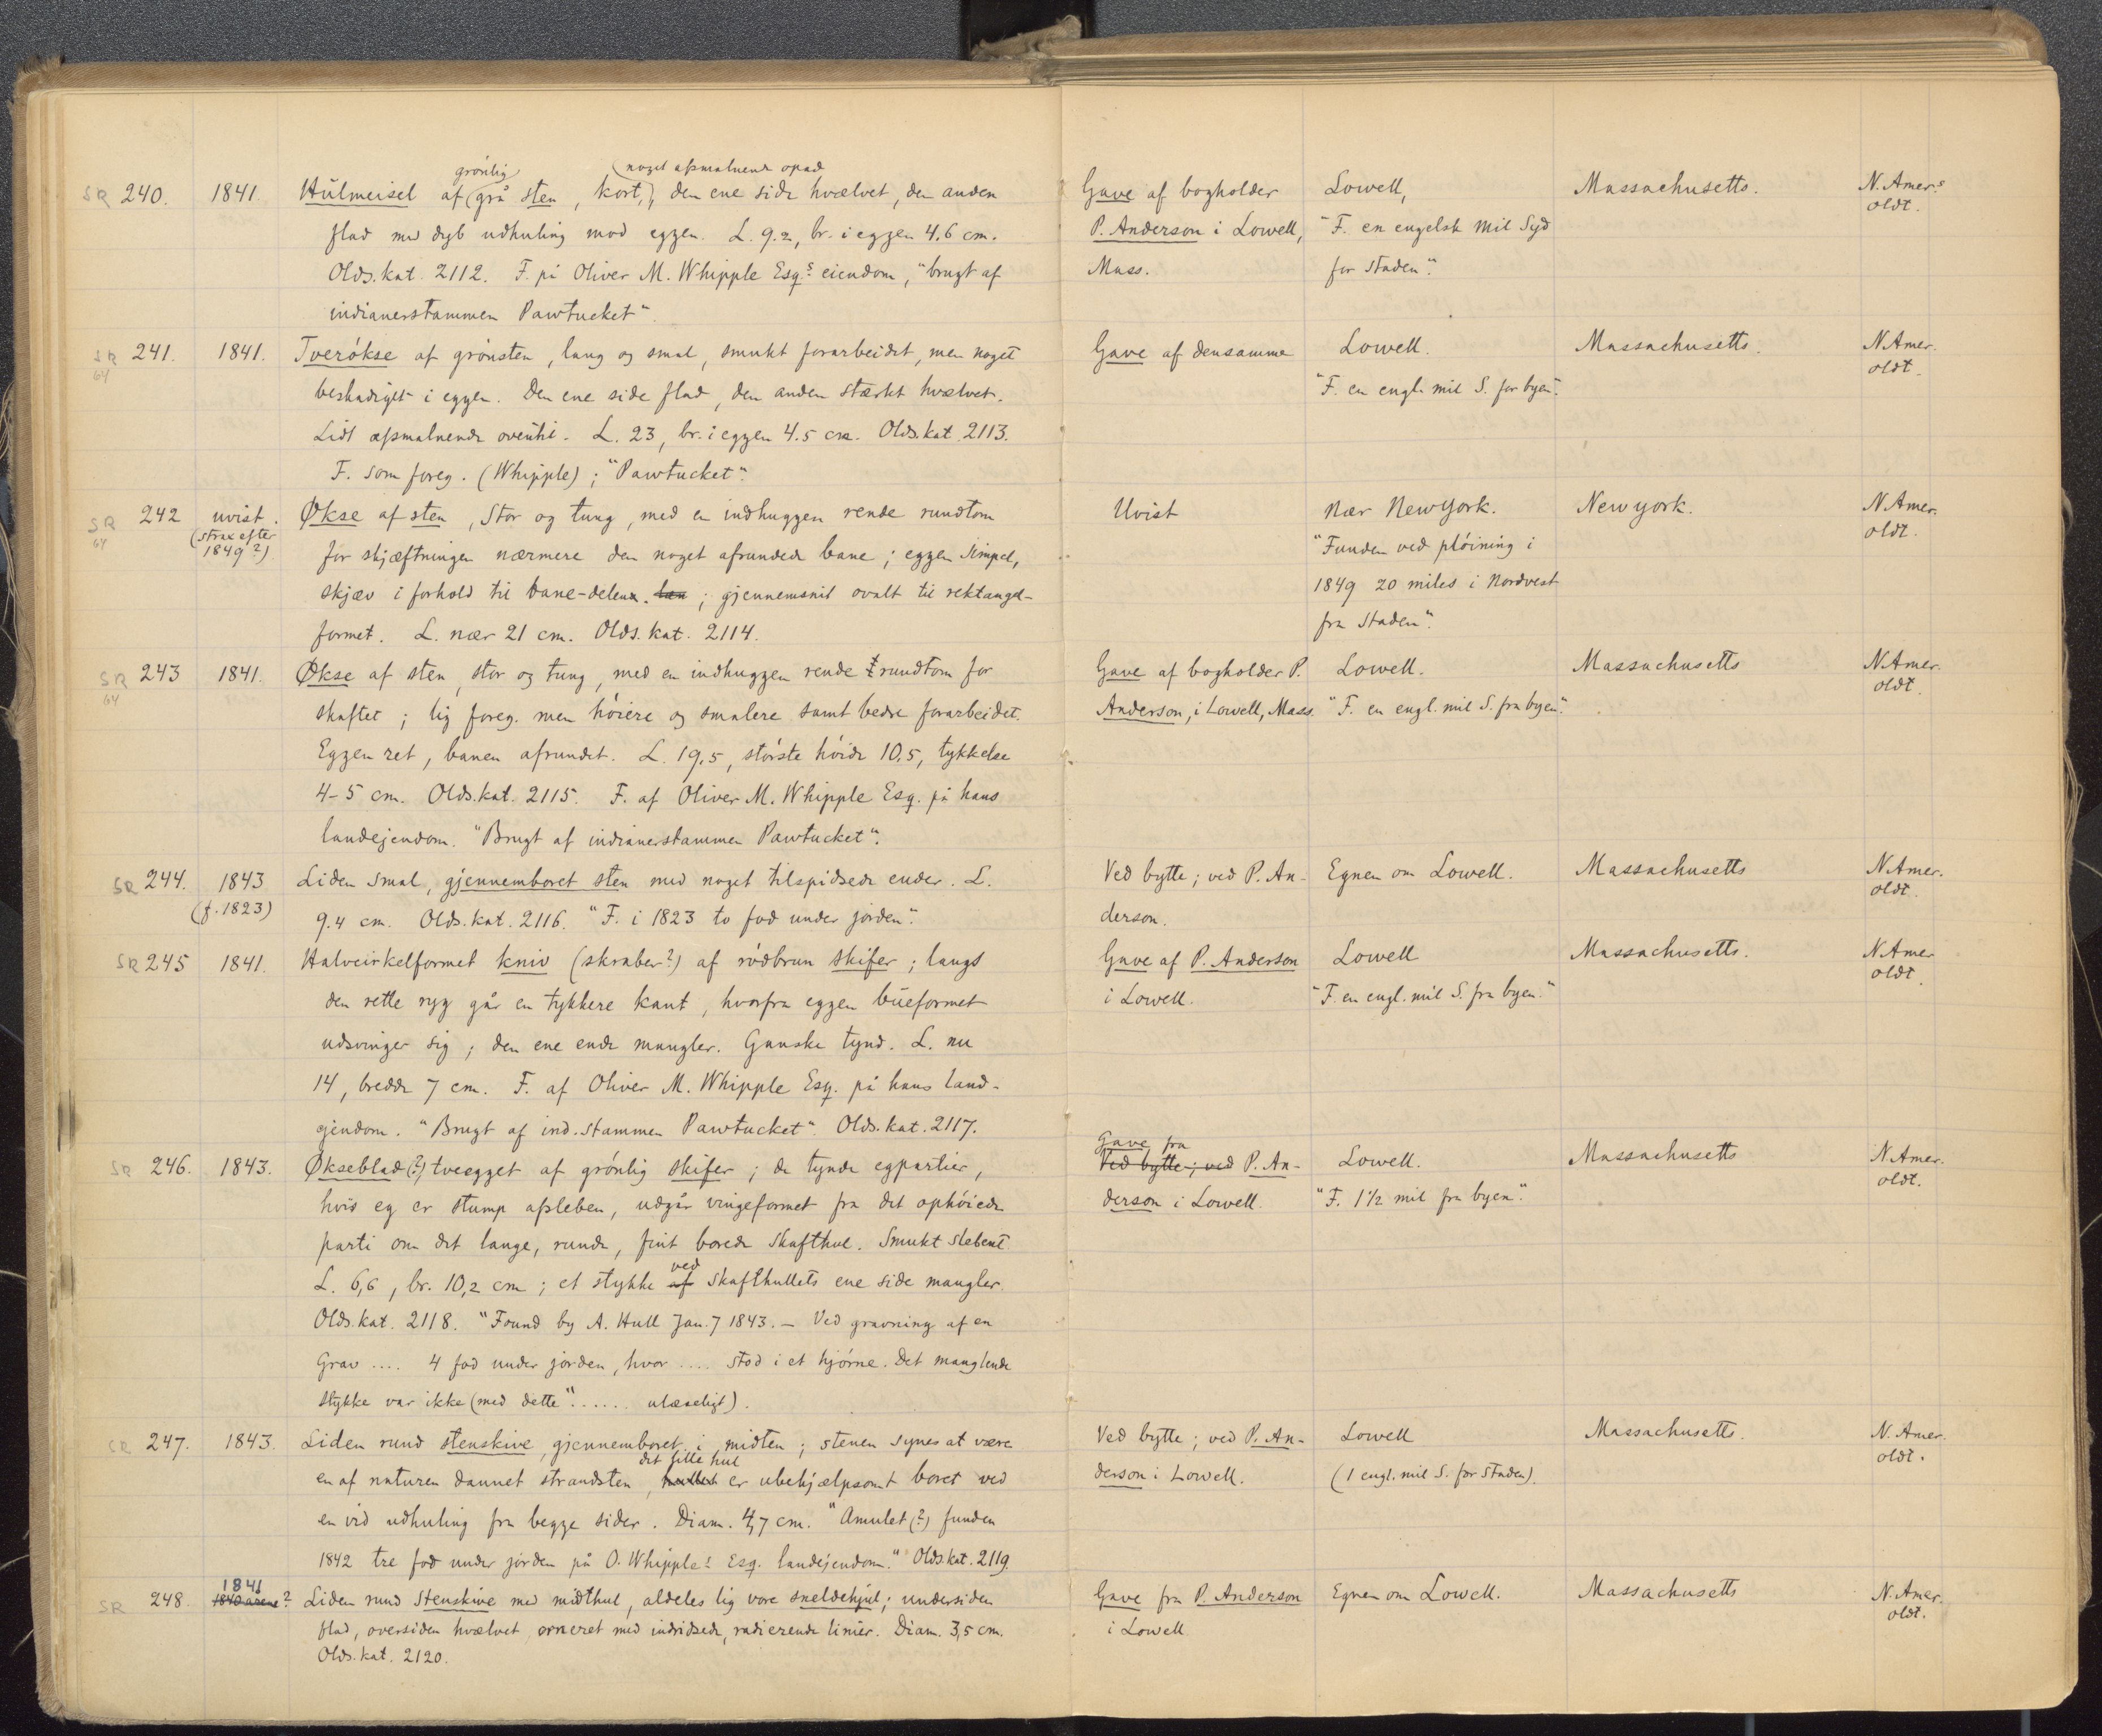 SR 240. 1841. Hulmeisel af (grønlig) grå sten, kort, (noget afsmalnende opad), den ene side hvælvet, den anden
flad med dyb udhuling mod eggen. L. 9.2, br. i eggen 4.6 cm.
Olds. kat. 2112. F. på Oliver M. Whipple Esq.s eiendom, "brugt af
indianerstammen Pawtucket".
Gave af bogholder
P. Anderson i Lowell,
Mass.
Lowell,
"F. en engelsk mil Syd
for staden".
Massachusetts.
N. Amer.s
oldt.
SR 64 241. 1841. Tverøkse af grønsten, lang og smal, smukt forarbeidet, men noget
beskadiget i eggen. Den ene side flad, den anden stærkt hvælvet.
Lidt afsmalnende oventil. L. 23, br. i eggen 4.5 cm. Olds. kat. 2113.
F. som foreg. (Whipple); "Pawtucket".
Gave af densamme
Lowell.
"F. en engl. mil S. for byen".
Massachusetts.
N. Amer.
oldt.
SR 64 242 uvist. (strax efter 1849?) Økse af sten, stor og tung, med en indhuggen rende rundtom
for skjæftningen nærmere den noget afrundede bane; eggen simpel,
skjæv i forhold til bane-delen; gjennemsnit ovalt til rektangel-
formet. L. nær 21 cm. Olds. kat. 2114.
Uvist
Nær New York.
"Funden ved pløining i
1849 20 miles i Nordvest
fra staden".
New York.
N. Amer.
oldt.
SR 64 243 1841. Økse af sten, stor og tung, med en indhuggen rende rundtom for
skaftet; lig foreg. men høiere og smalere samt bedre forarbeidet.
Eggen ret, banen afrundet. L. 19,5, største høide 10,5, tykkelse
4-5 cm. Olds. kat. 2115. F. af Oliver M. Whipple Esq. på hans
landejendom. "Brugt af indianerstammen Pawtucket".
Gave af bogholder P.
Anderson, i Lowell, Mass.
Lowell.
"F. en engl. mil S. fra byen".
Massachusetts
N. Amer.
oldt.
SR 244. 1843 (f. 1823) Liden smal, gjennemboret sten med noget tilspidsede ender. L.
9.4 cm. Olds. kat. 2116. "F. i 1823 to fod under jorden".
Ved bytte; ved P. An-
derson.
Egnen om Lowell.
Massachusetts
N. Amer.
oldt.
SR 245 1841. Halvcirkelformet kniv (skraber?) af rødbrun skifer; langs
den rette ryg går en tykkere kant, hvorfra eggen bueformet
udsvinger sig; den ene ende mangler. Ganske tynd. L. nu
14, bredde 7 cm. F. af Oliver M. Whipple Esq. på hans land-
ejendom. "Brugt af ind. stammen Pawtucket". Olds. kat. 2117.
Gave af P. Anderson
i Lowell.
Lowell
"F. en engl. mil S. fra byen."
Massachusetts.
N. Amer
oldt.
SR 246. 1843. Økseblad (?) tveegget af grønlig skifer; de tynde egpartier,
hvis eg er stump afsleben, udgår vingeformet fra det ophøiede
parti om det lange, runde, fint borede skafthul. Smukt slebent
L. 6,6, br. 10,2 cm; et stykke af ved skafthullets ene side mangler.
Olds. kat. 2118. "Found by A. Hull Jan. 7 1843. – Ved gravning af en
Grav .... 4 fod under jorden, hvor .... stod i et hjørne. Det manglende
stykke var ikke (med dette" ...... ulæseligt).
Gave fra
Ved bytte; ved P. An-
derson i Lowell.
Lowell.
"F. 1 1/2 mil fra byen".
Massachusetts
N. Amer.
oldt.
SR 247. 1843. Liden rund stenskive, gjennemboret i midten; stenen synes at være
en af naturen dannet strandsten, hullet det lille hul er ubehjælpsomt boret ved
en vid udhuling fra begge sider. Diam. 4,7 cm. "Amulet (?) funden
1842 tre fod under jorden på O. Whipple's Esq. landejendom." Olds. kat. 2119.
Ved bytte; ved P. An-
derson i Lowell.
Lowell
(1 engl. mil S. for staden).
Massachusetts.
N. Amer.
oldt.
SR 248. 1841 1840 årene? Liden rund stenskive med midthul, aldeles lig vore sneldehjul; undersiden
flad, oversiden hvælvet, orneret med indridsede, radierende linier. Diam. 3,5 cm.
Olds. kat. 2120.
Gave fra P. Anderson
i Lowell
Egnen om Lowell.
Massachusetts
N. Amer.
oldt.